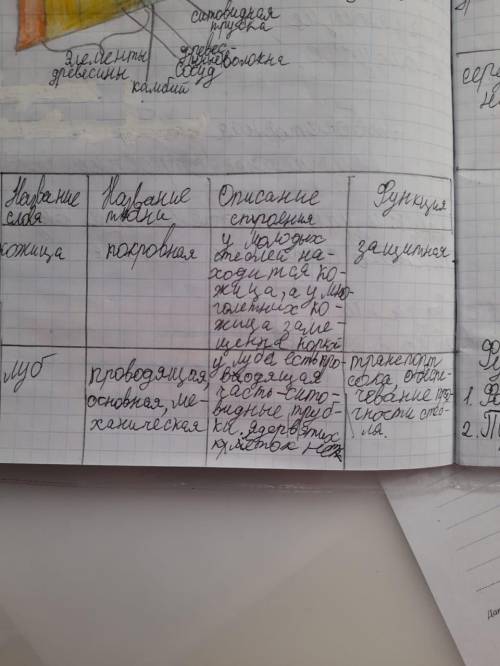 ситовидная
трубка
элементы
древесины
древес-
волокна
сосуд
камбий
Название
слоя
Название
ткани
Описание
строения
Функция
кожица
покровная
у молодых
стеблей на-
ходится ко-
жица, а у мно-
голетних ко-
жица заме-
щена
защитная
луб
проводящая,
основная, ме-
ханическая
у луба есть про-
водящая
часть-сито-
видные труб-
ки. ядер в этих
клетках нет
транспорт
сока, обеспе-
чевание про-
чности стеб-
ля.
сере
1.
2. П